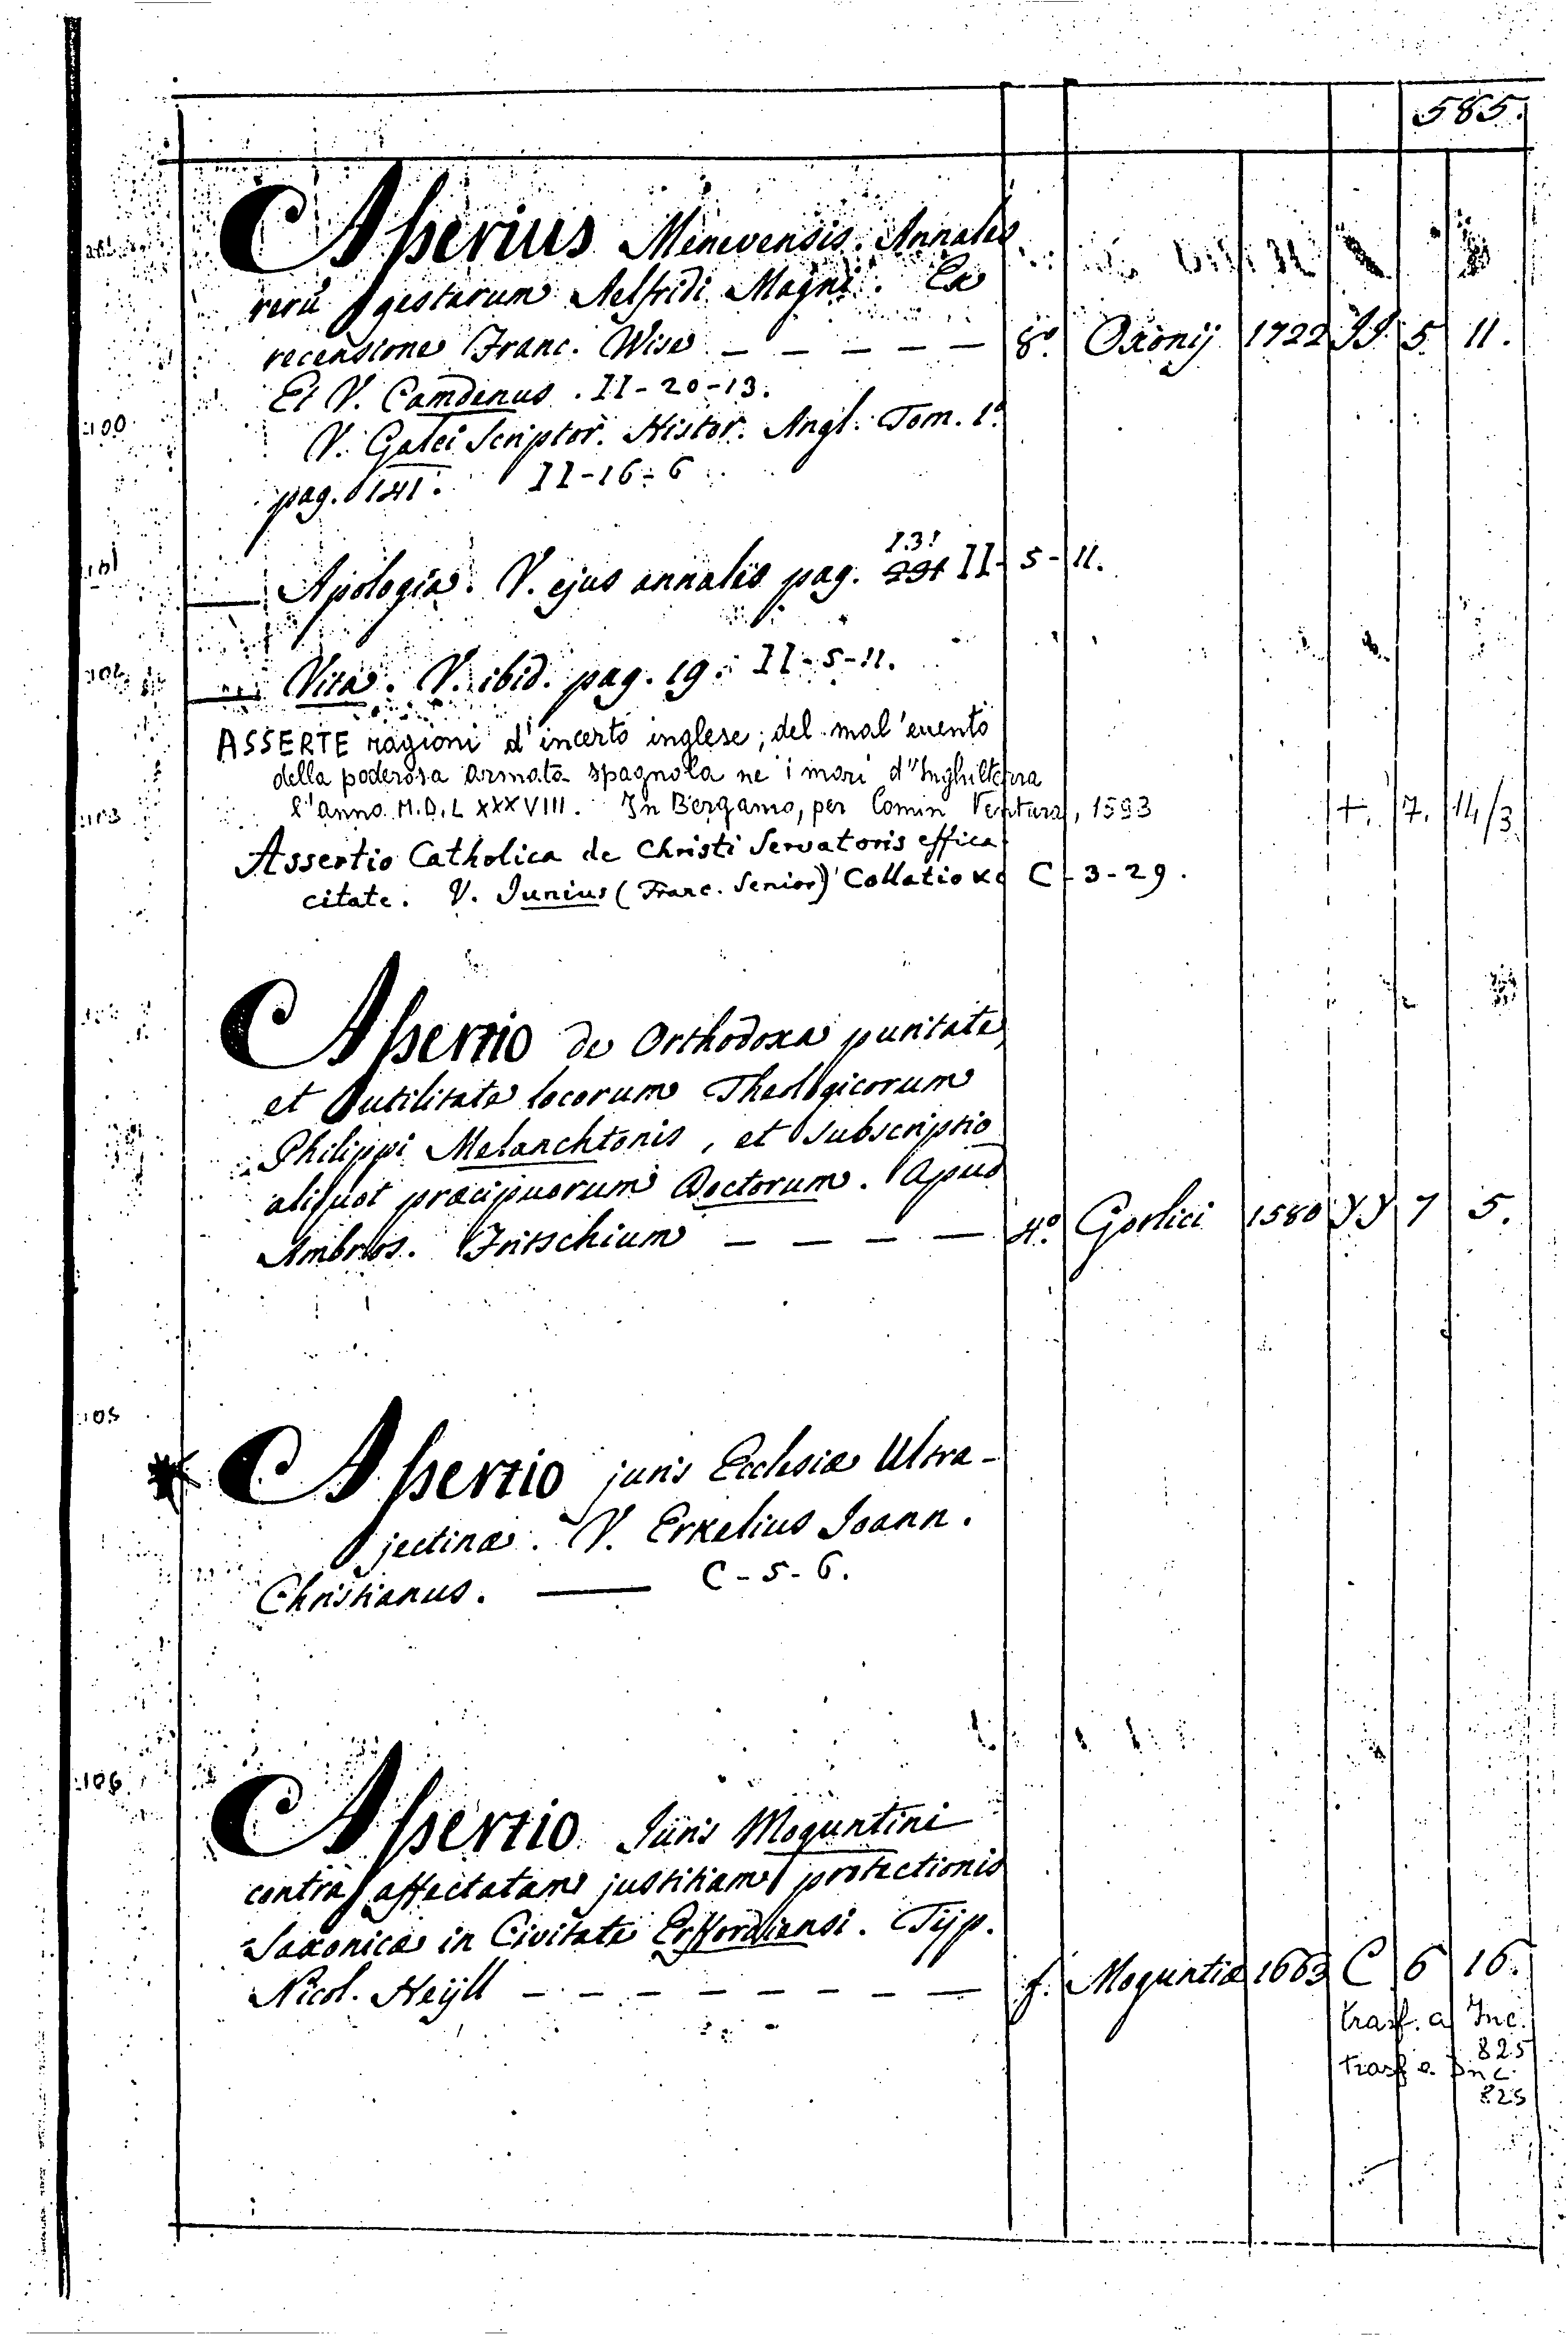 585.
Asserius Menevensis. Annales
rerũ gestarum Aelfridi Magni. Ex
recensione Franc. Wise — — — — — 8º. Oxonij 1722 II. 5. 11.
Et V. Camdenus. II-20-13.
100
V. Galei Scriptor. Histor. Angl. Tom. 1º.
pag. 141. II-16-6
131
101 — Apologia. V. ejus annales pag. 291 II-5-11.
— Vita. V. ibid. pag. 19. II-5-11.
ASSERTE ragioni d'incerto inglese; del mal'evento
della poderosa armata spagnola ne i mari d'Inghilterra
103 l'anno M.D.LXXXVIII. In Bergamo, per Comin Ventura, 1593 +. 7. 14/3
Assertio Catholica de Christi Servatoris effica
citate. V. Junius (Franc. Senior) Collatio xc C-3-29.
Assertio de Orthodoxa puritate,
et utilitate locorum Theologicorum
Philippi Melanchtonis, et subscriptio
aliquot præcipuorum Doctorum. Apud
Ambros. Fritschium — — — — 4º. Gorlici 1580 YY 7 5.
105
Assertio juris Ecclesiæ Ultra-
jectinæ. V. Erkelius Joann.
Christianus. — C-5-6.
106
Assertio Juris Moguntini
contra affectatam justitiam protectionis
Saxonicæ in Civitate Erffordiensi. Typ.
Nicol. Heyll — — — — — — — — f. Moguntiæ 1663 C 6 16.
trasf. a Inc.
825
trasf a Inc.
825